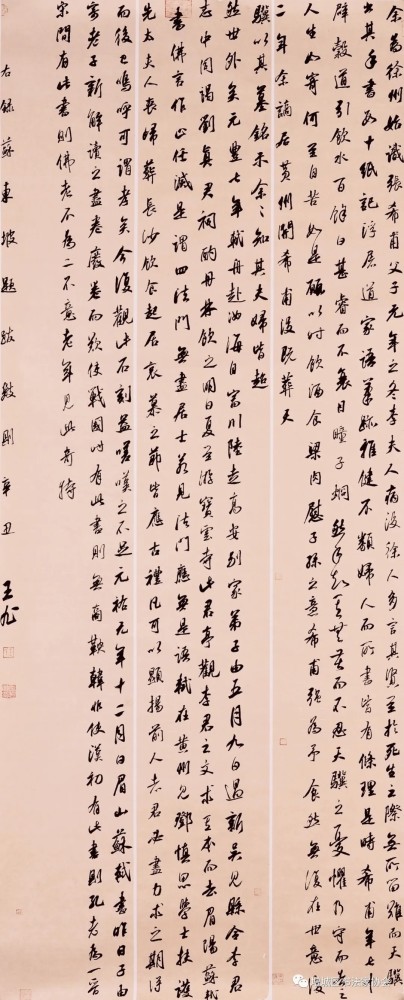 余為徐州始識張希甫父子元年之冬李夫人病沒徐人多言其賢至於死生之際無所留難而天驥
出其手書數十紙記浮屠道家語筆跡雅健不類婦人而所書皆有條理是時希甫年七十
辟穀道引飲水百餘日甚瘠而不衰目瞳子炯然余知其無苦而不忍天驥之憂懼乃守而告之
人生如寄何至自苦如是願以時飲酒食粱肉慰子孫之意希甫強為予食然無復在世意後
二年余謫居黃州聞希甫沒既葬天
驥以其墓銘示余余知其夫婦皆超
然世外矣元豐七年軾舟赴汝海自富川陸走高安別家弟子由五月九日過新吳見縣令李君
志中同謁劉真君祠酌丹井飲之明日夏至游寶雲寺此君亭觀李君之文求其本而去眉陽蘇軾
書佛言作止任滅是謂四法門無盡居士若見法門應無是語軾在黃州見鄧慎思學士扶護
先太夫人喪歸葬長沙飲食起居哀慕之節皆應古禮凡可以顯揚前人者君必盡力求之期得
而後已嗚呼可謂孝矣今復觀此石刻益嗟嘆之不足元祐元年十二月日眉山蘇軾書昨日子由
寄老子新解讀之盡卷廢卷而歎使戰國時有此書則無商鞅韓非使漢初有此書則孔老為一晉
宋間有此書則佛老不為二不意老年見此奇特
右錄蘇東坡題跋數則辛丑 王